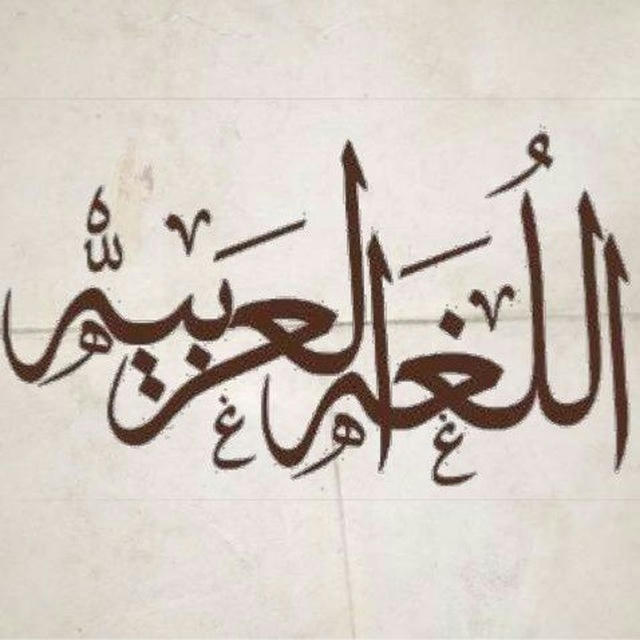 اللُّغَه العَربيه